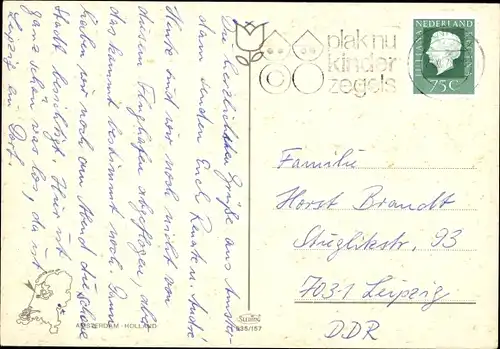 Die herzlichsten Grüße aus Amster-
dam senden Euch Renate u. André
Heute sind wir noch nicht von
diesem Flughafen abgeflogen, aber
das kommt bestimmt noch. Dann
haben wir noch am Abend die schöne
Stadt besichtigt. Hier ist
ganz schön was los, da ist
Leipzig ein Dorf.
AMSTERDAM - HOLLAND
835/157
plak nu
kinder
zegels
NEDERLAND
JULIANA REGINA
75c
Familie
Horst Brandt
Stuglikstr. 93
703-1 Leipzig
DDR